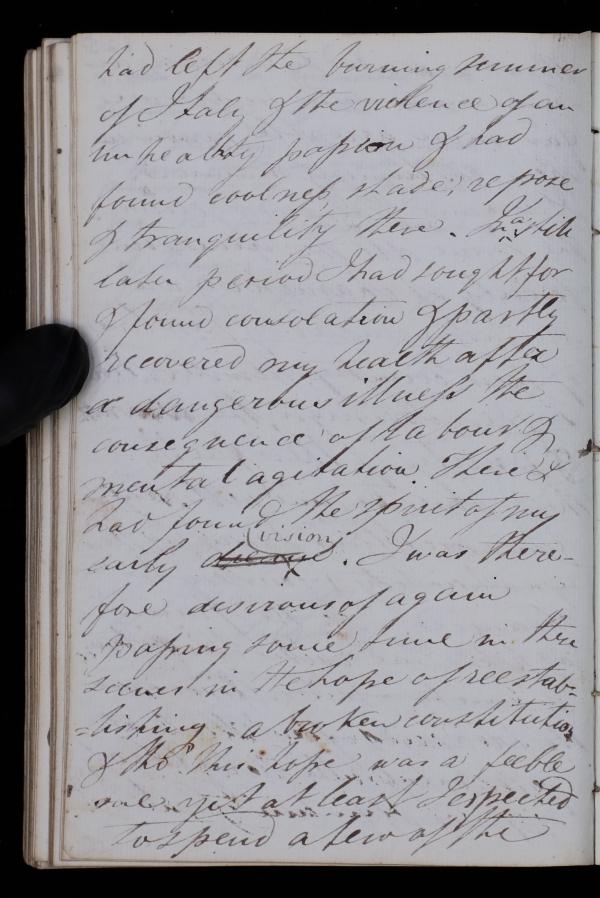 had left the burning summer
of Italy & the violence of an
unhealthy passion & had
found coolness, shade, repose
& tranquility there. In a still
later period I had sought for
& found consolation & partly
recovered my health after
a dangerous illness the
consequence of labour &
mental agitation. There I
had found the spirit of my
early dream (vision). I was there-
fore desirous of again
passing some time in these
scenes in the hope of reestab-
=lishing a broken constitution
& tho' this hope was a feeble
one yet at least I expected
to spend a few of the